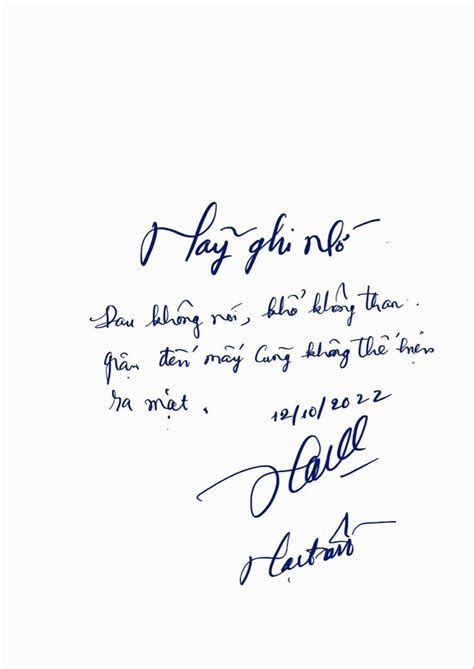 Hãy ghi nhớ
Đau không nói, khổ không than.
giận đến mấy cũng không thể hiện
ra mặt.
12/10/2022